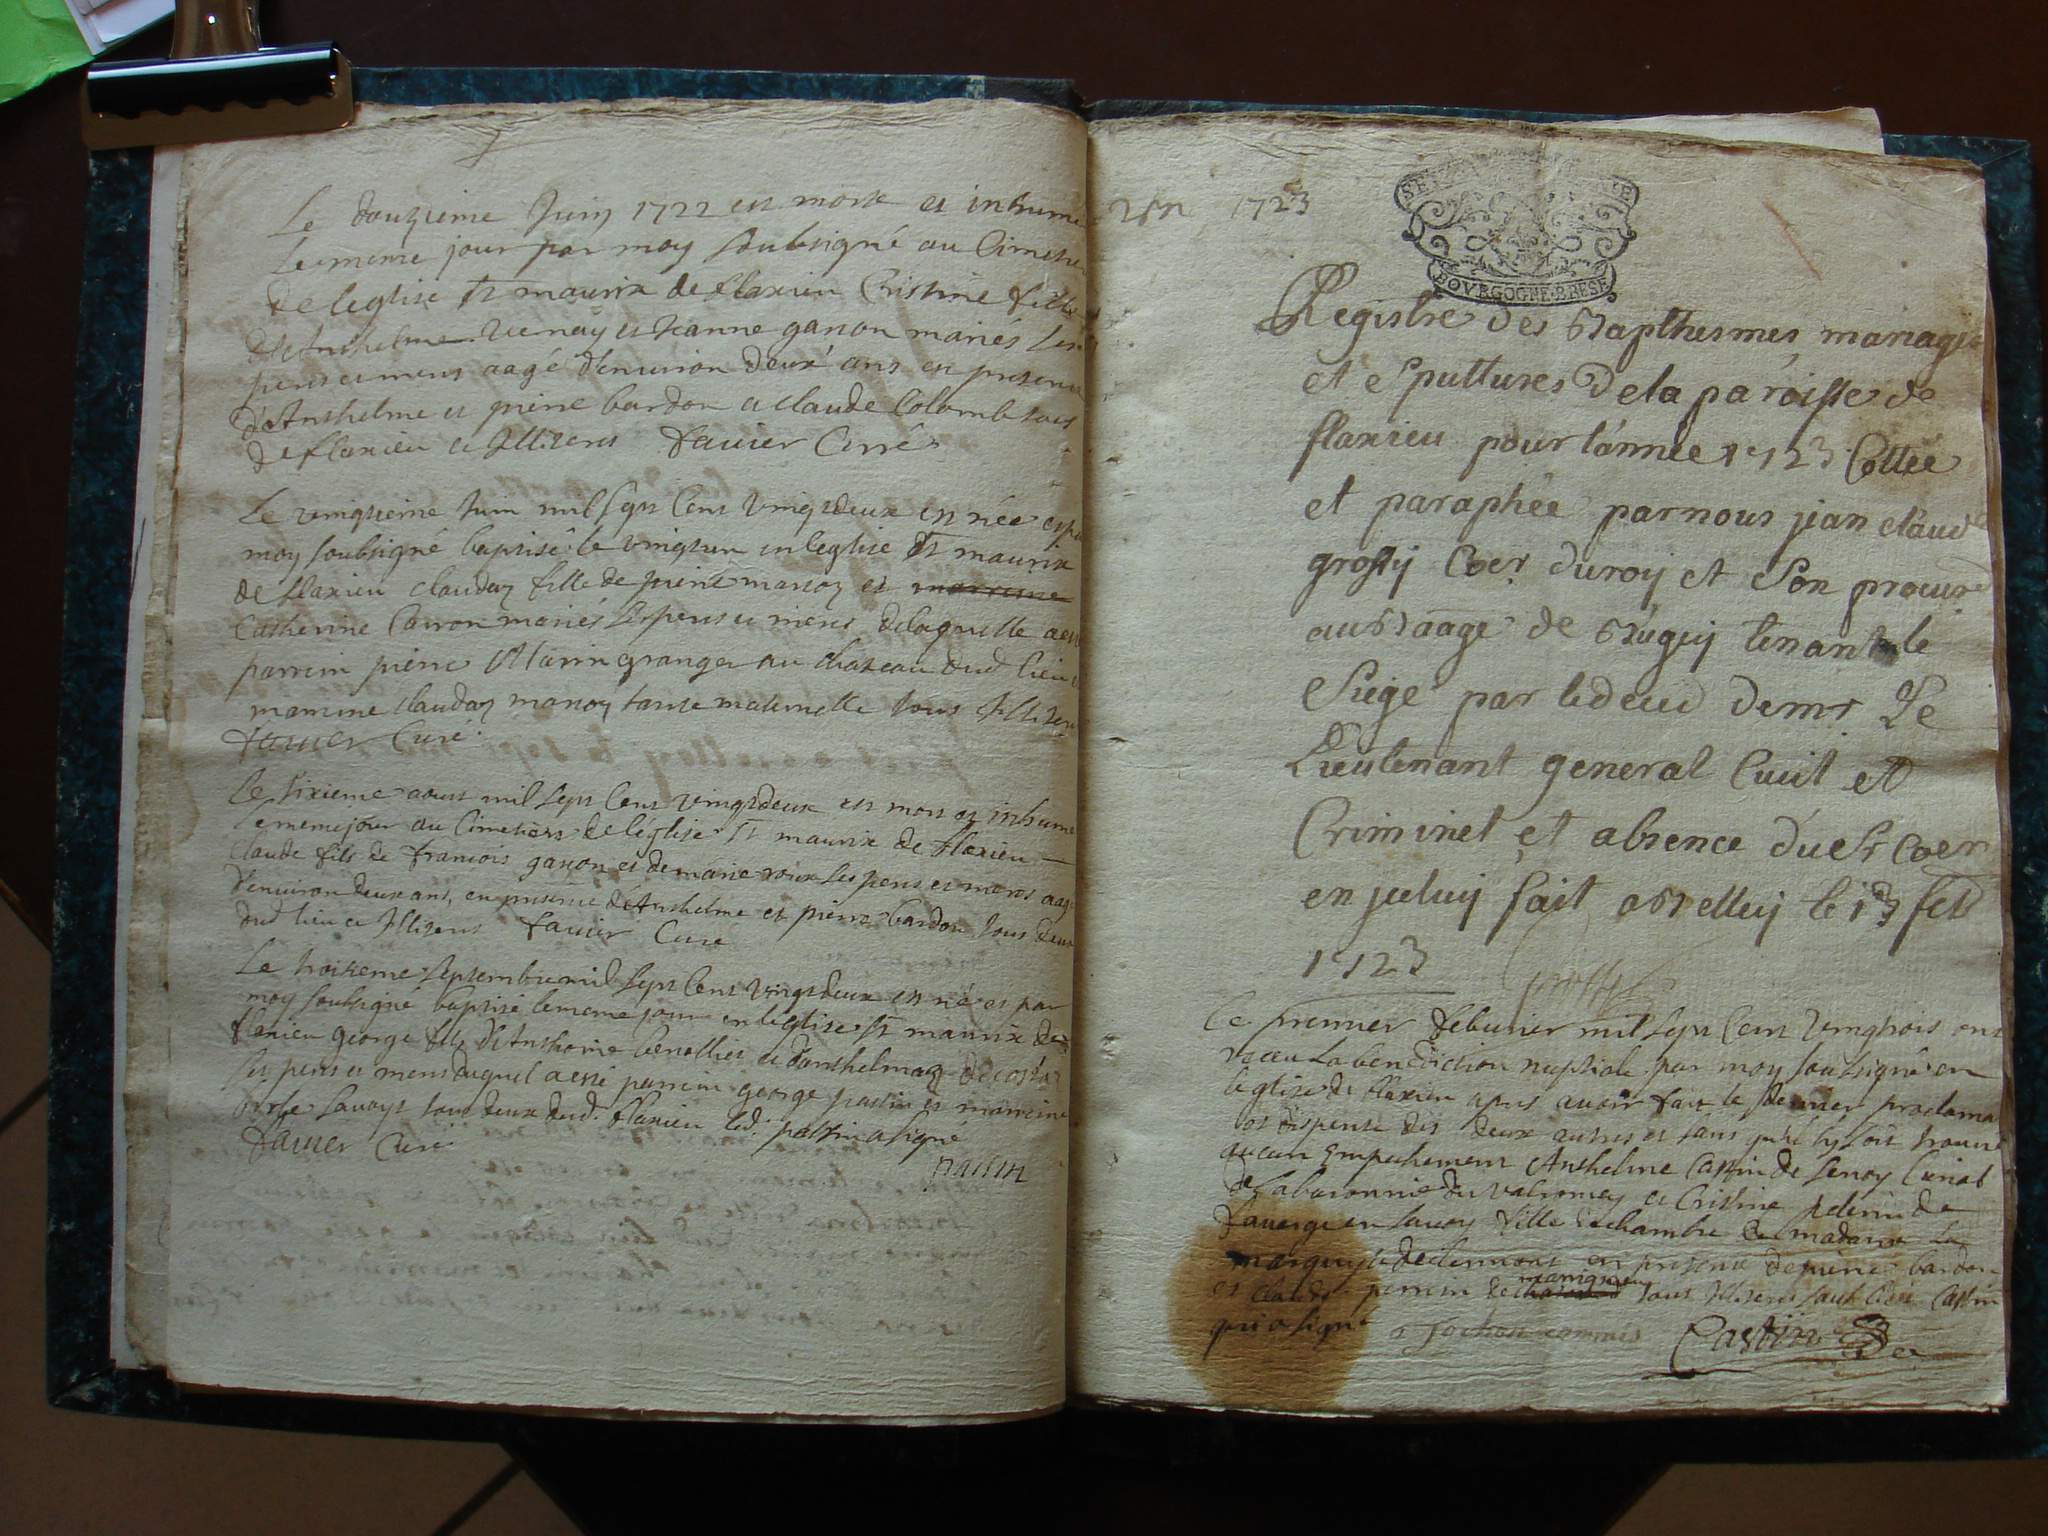 Le douzieme Juin 1722 est morte et inhume
Le meme jour par moy soubsigné au Cimetie
de leglise St maurix de flaxieu Cristine fille
d'Anthelme et Jeanne garson mariés ses
peres et meres aagé d'environ deux ans en presence
d'Anthelme et pierre bardon et claude Colomb tous
de flaxieu et Illiteres favier Curé
Le vingtieme Juin mil sept Cent vingt deux est née et par
moy soubsigné baptisé le vingt un en leglise St maurix
de flaxieu claudaz fille de pierre marion et
Catherine Carron mariés ses peres et meres de laquelle a esté
parrein pierre granger au chateau dud lieu
marrine claudaz marion tante maternelle tous Illiteres
favier Curé
Le sixieme aoust mil sept Cent vingt deux est mort et inhumé
Le meme jour au Cimetiere de léglise St maurix de flaxieu
Claude fils de francois garson et de marie roux ses peres et meres aagé
d'environ deux ans, en presence d'Anthelme et pierre bardon tous deux
dud lieu et Illiteres favier Curé
Le troisieme septembre mil sept Cent vingt deux est né et par
moy soubsigné baptisé le meme jour en leglise St maurix de
flaxieu george fils d'Anthoine et d'anthelmaz
ses peres et meres duquel a esté parrein george pastin et marrine
tous deux dud. flaxieu led. pastin a signé
favier Curé
pastin
1723
BOVRGOGNE BRESSE
Registre des Bapthesmes mariages
et Sepultures De la paroisse de
flaxieu pour l'année 1723 Cottée
et paraphée par nous jean claude
grossy Coer du roy et Son procur
au Baage de Bugey tenant le
Siege par le deced de mr Le
Lieutenant general Civil et
Criminel et absence du Sr Coer
en jceluy fait a Belley le 13 feb
1723
Le premier febvrier mil sept Cent vingt trois ont
receu La benediction nuptiale par moy soubsigné en
léglise de flaxieu apres avoir fait le premier proclama
et dispense des deux autres et sans quil sy soit trouvé
aucun Empechement Anthelme Castin de
de la baronnie du valromey et Cristine de
faverge en savoy fille de chambre de madame La
marquise de clermont en presence de pierre bardon
et claude perrin de tous Illiteres sauf led Castin
qui a signé Tochon commis Castin